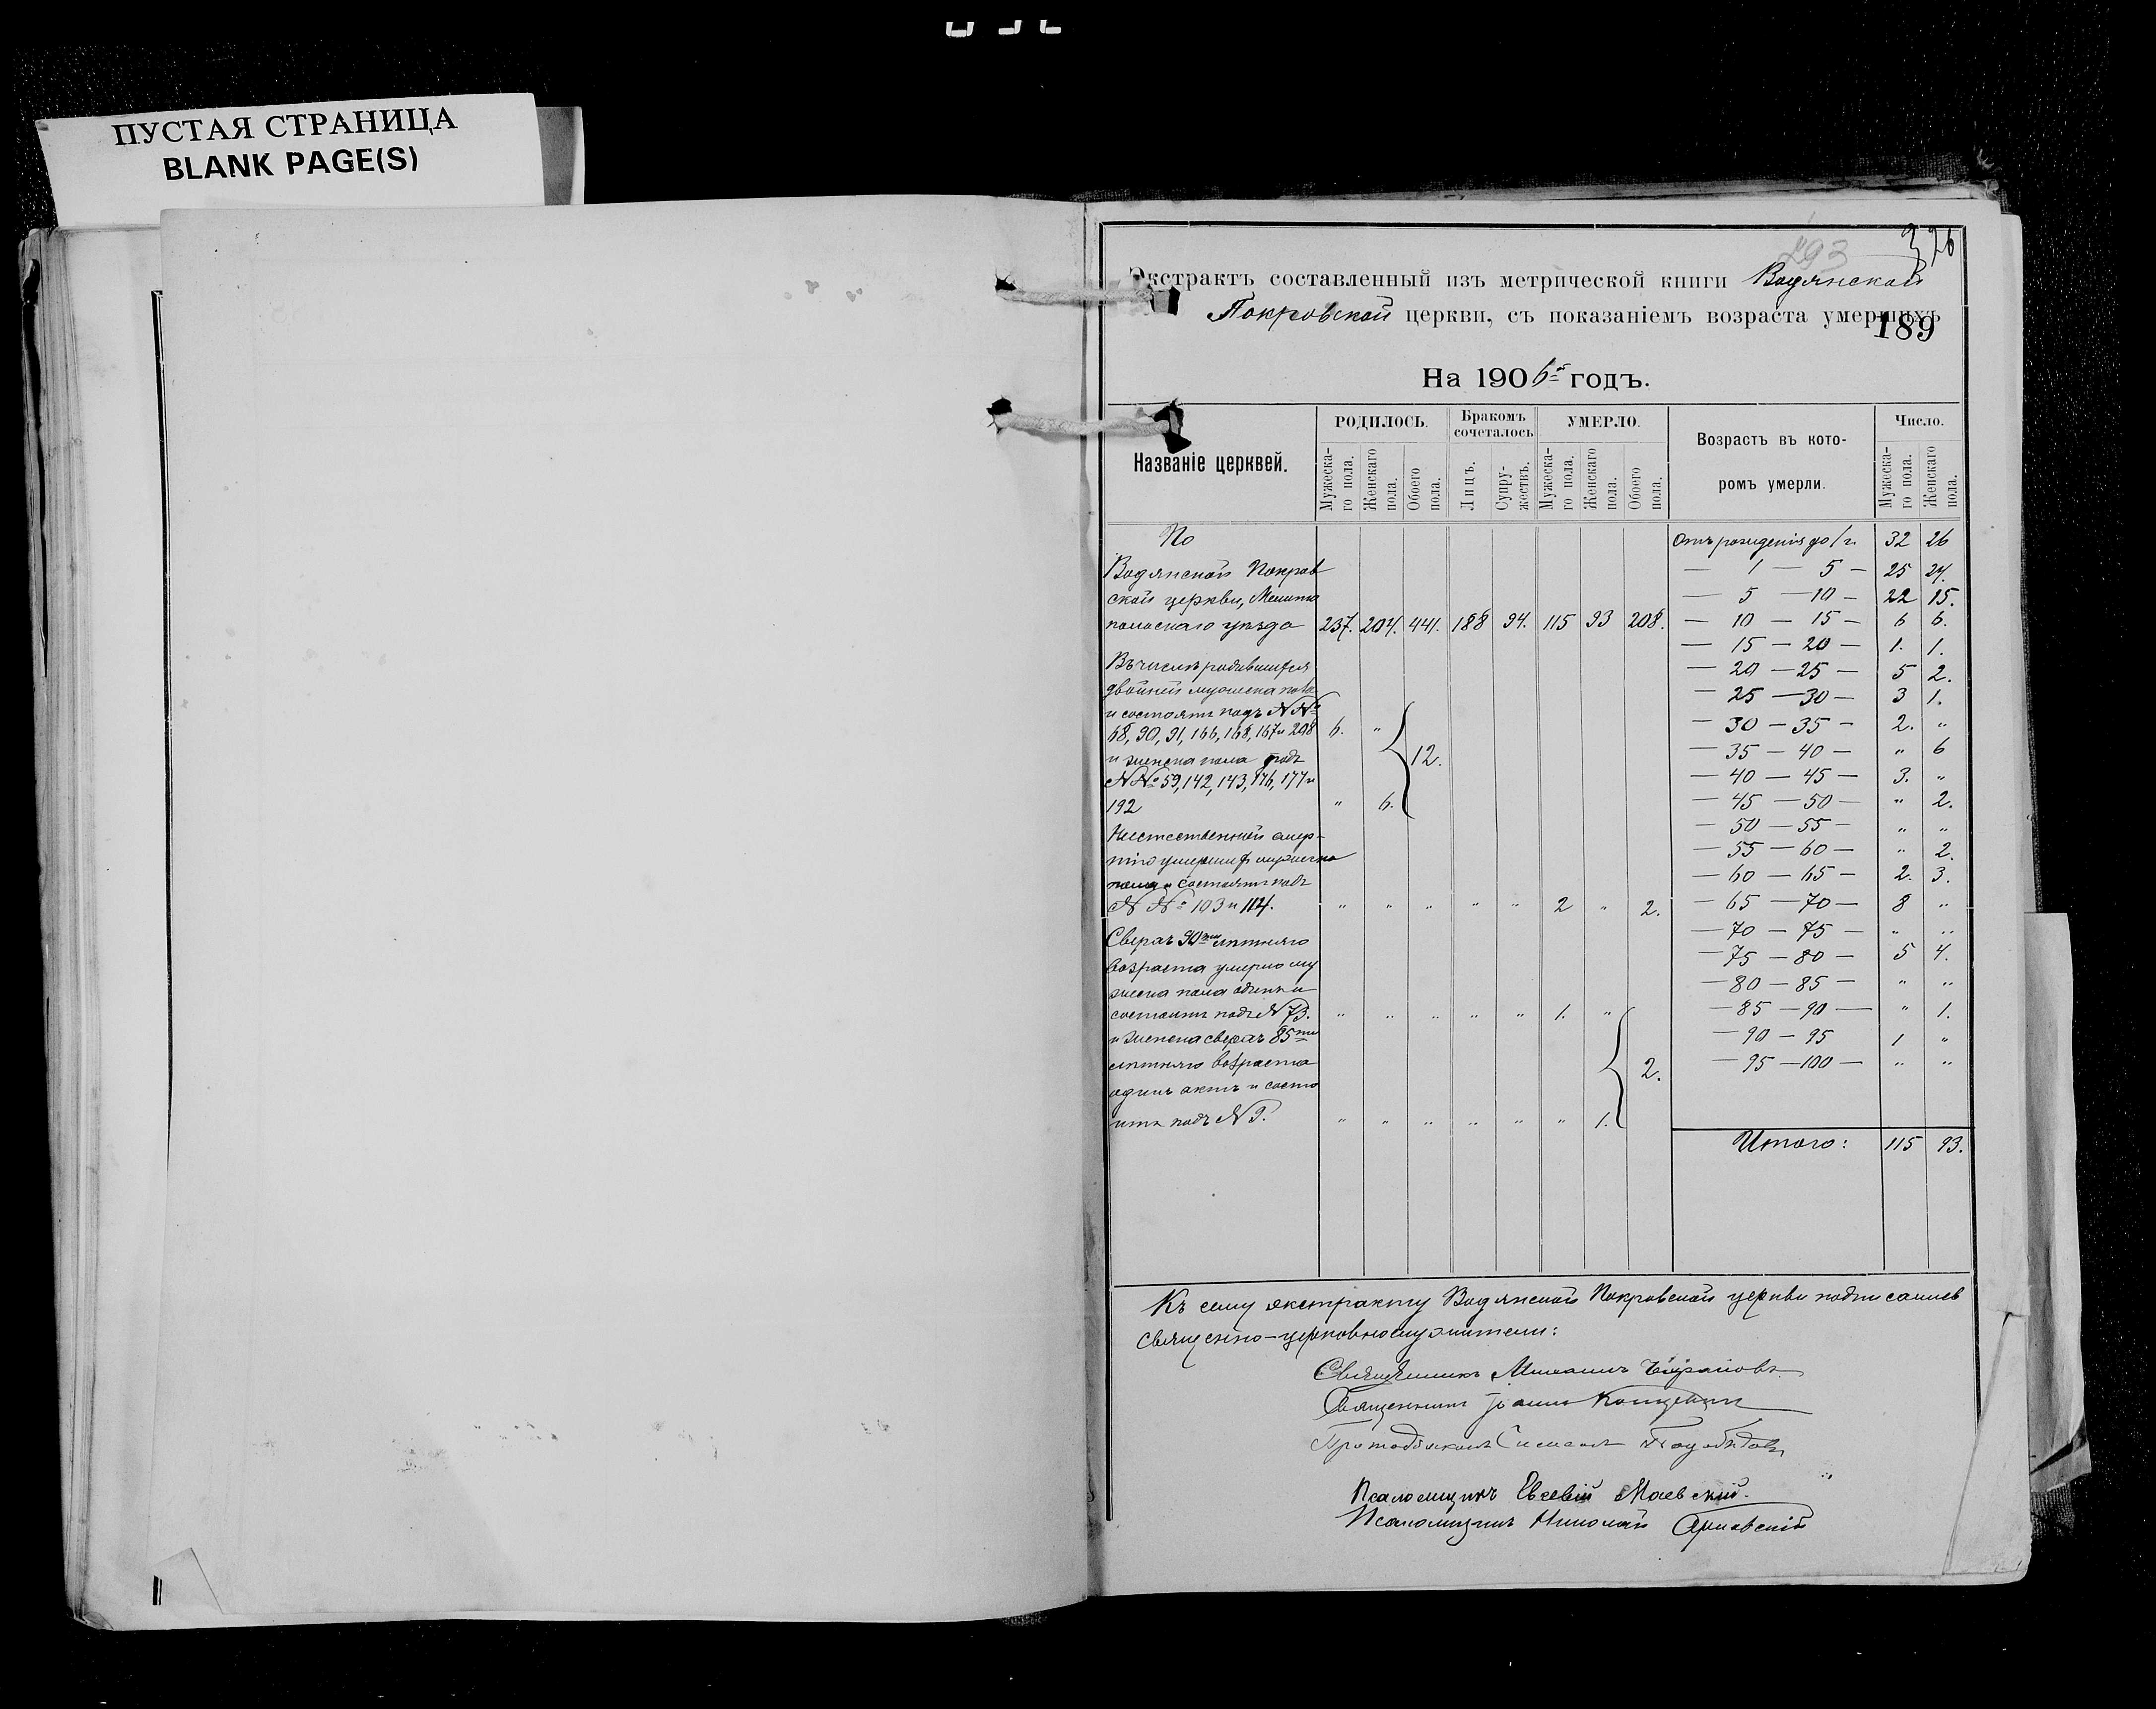 ПУСТАЯ СТРАНИЦА
BLANK PAGE(S)
293
326
Экстрактъ составленный изъ метрической книги Водянской
Покровской церкви, съ показаніемъ возраста умершихъ
189
На 1906й годъ.
Названіе церквей.
РОДИЛОСЬ.
Бракомъ сочеталось
УМЕРЛО.
Возрастъ въ которомъ умерли.
Число.
Мужеска-го пола. Женскаго пола. Обоего пола. Лицъ. Супру-жествъ. Мужеска-го пола. Женскаго пола. Обоего пола. Мужеска-го пола. Женскаго пола.
По
Водянской Покров
ской церкви, Мелито
польскаго уѣзда 237. 204. 441. 188 94. 115 93 208.
Въ числѣ родившихся
двойней мужеска пола
и состоятъ подъ NNº
68, 90, 91, 166, 168, 167 и 208 6. "
и женска пола подъ 12.
NNº 59, 142, 143, 176, 177 и
192 " 6.
Неестественной смер-
тію умершихъ мужеска
пола и состоятъ подъ
NNº 103 и 114. " " " " " 2 " 2.
Сверхъ 90ти лѣтняго
возраста умерло му
жеска пола одинъ и
состоитъ подъ N 73. " " " " " 1. "
и женска сверхъ 85ти
лѣтняго возраста 2.
одинъ актъ и состо
итъ подъ N 9. " " " " " " 1.
Отъ рожденія до 1 г. 32 26
— 1 — 5 — 25 24.
— 5 — 10 — 22 15.
— 10 — 15 — 6 6.
— 15 — 20 — 1. 1.
— 20 — 25 — 5 2.
— 25 — 30 — 3 1.
— 30 — 35 — 2. "
— 35 — 40 — " 6
— 40 — 45 — 3. "
— 45 — 50 — " 2.
— 50 — 55 — " "
— 55 — 60 — " 2.
— 60 — 65 — 2. 3.
— 65 — 70 — 8 "
— 70 — 75 — " "
— 75 — 80 — 5 4.
— 80 — 85 — " "
— 85 — 90 — " 1.
— 90 — 95 1 "
— 95 — 100 — " "
Итого: 115 93.
Къ сему экстракту Водянской Покровской церкви подписались
священно-церковнослужители:
Священникъ Михаилъ
Священникъ Іоаннъ
Протодіаконъ
Псаломщикъ Евсевій Маевскій.
Псаломщикъ Николай